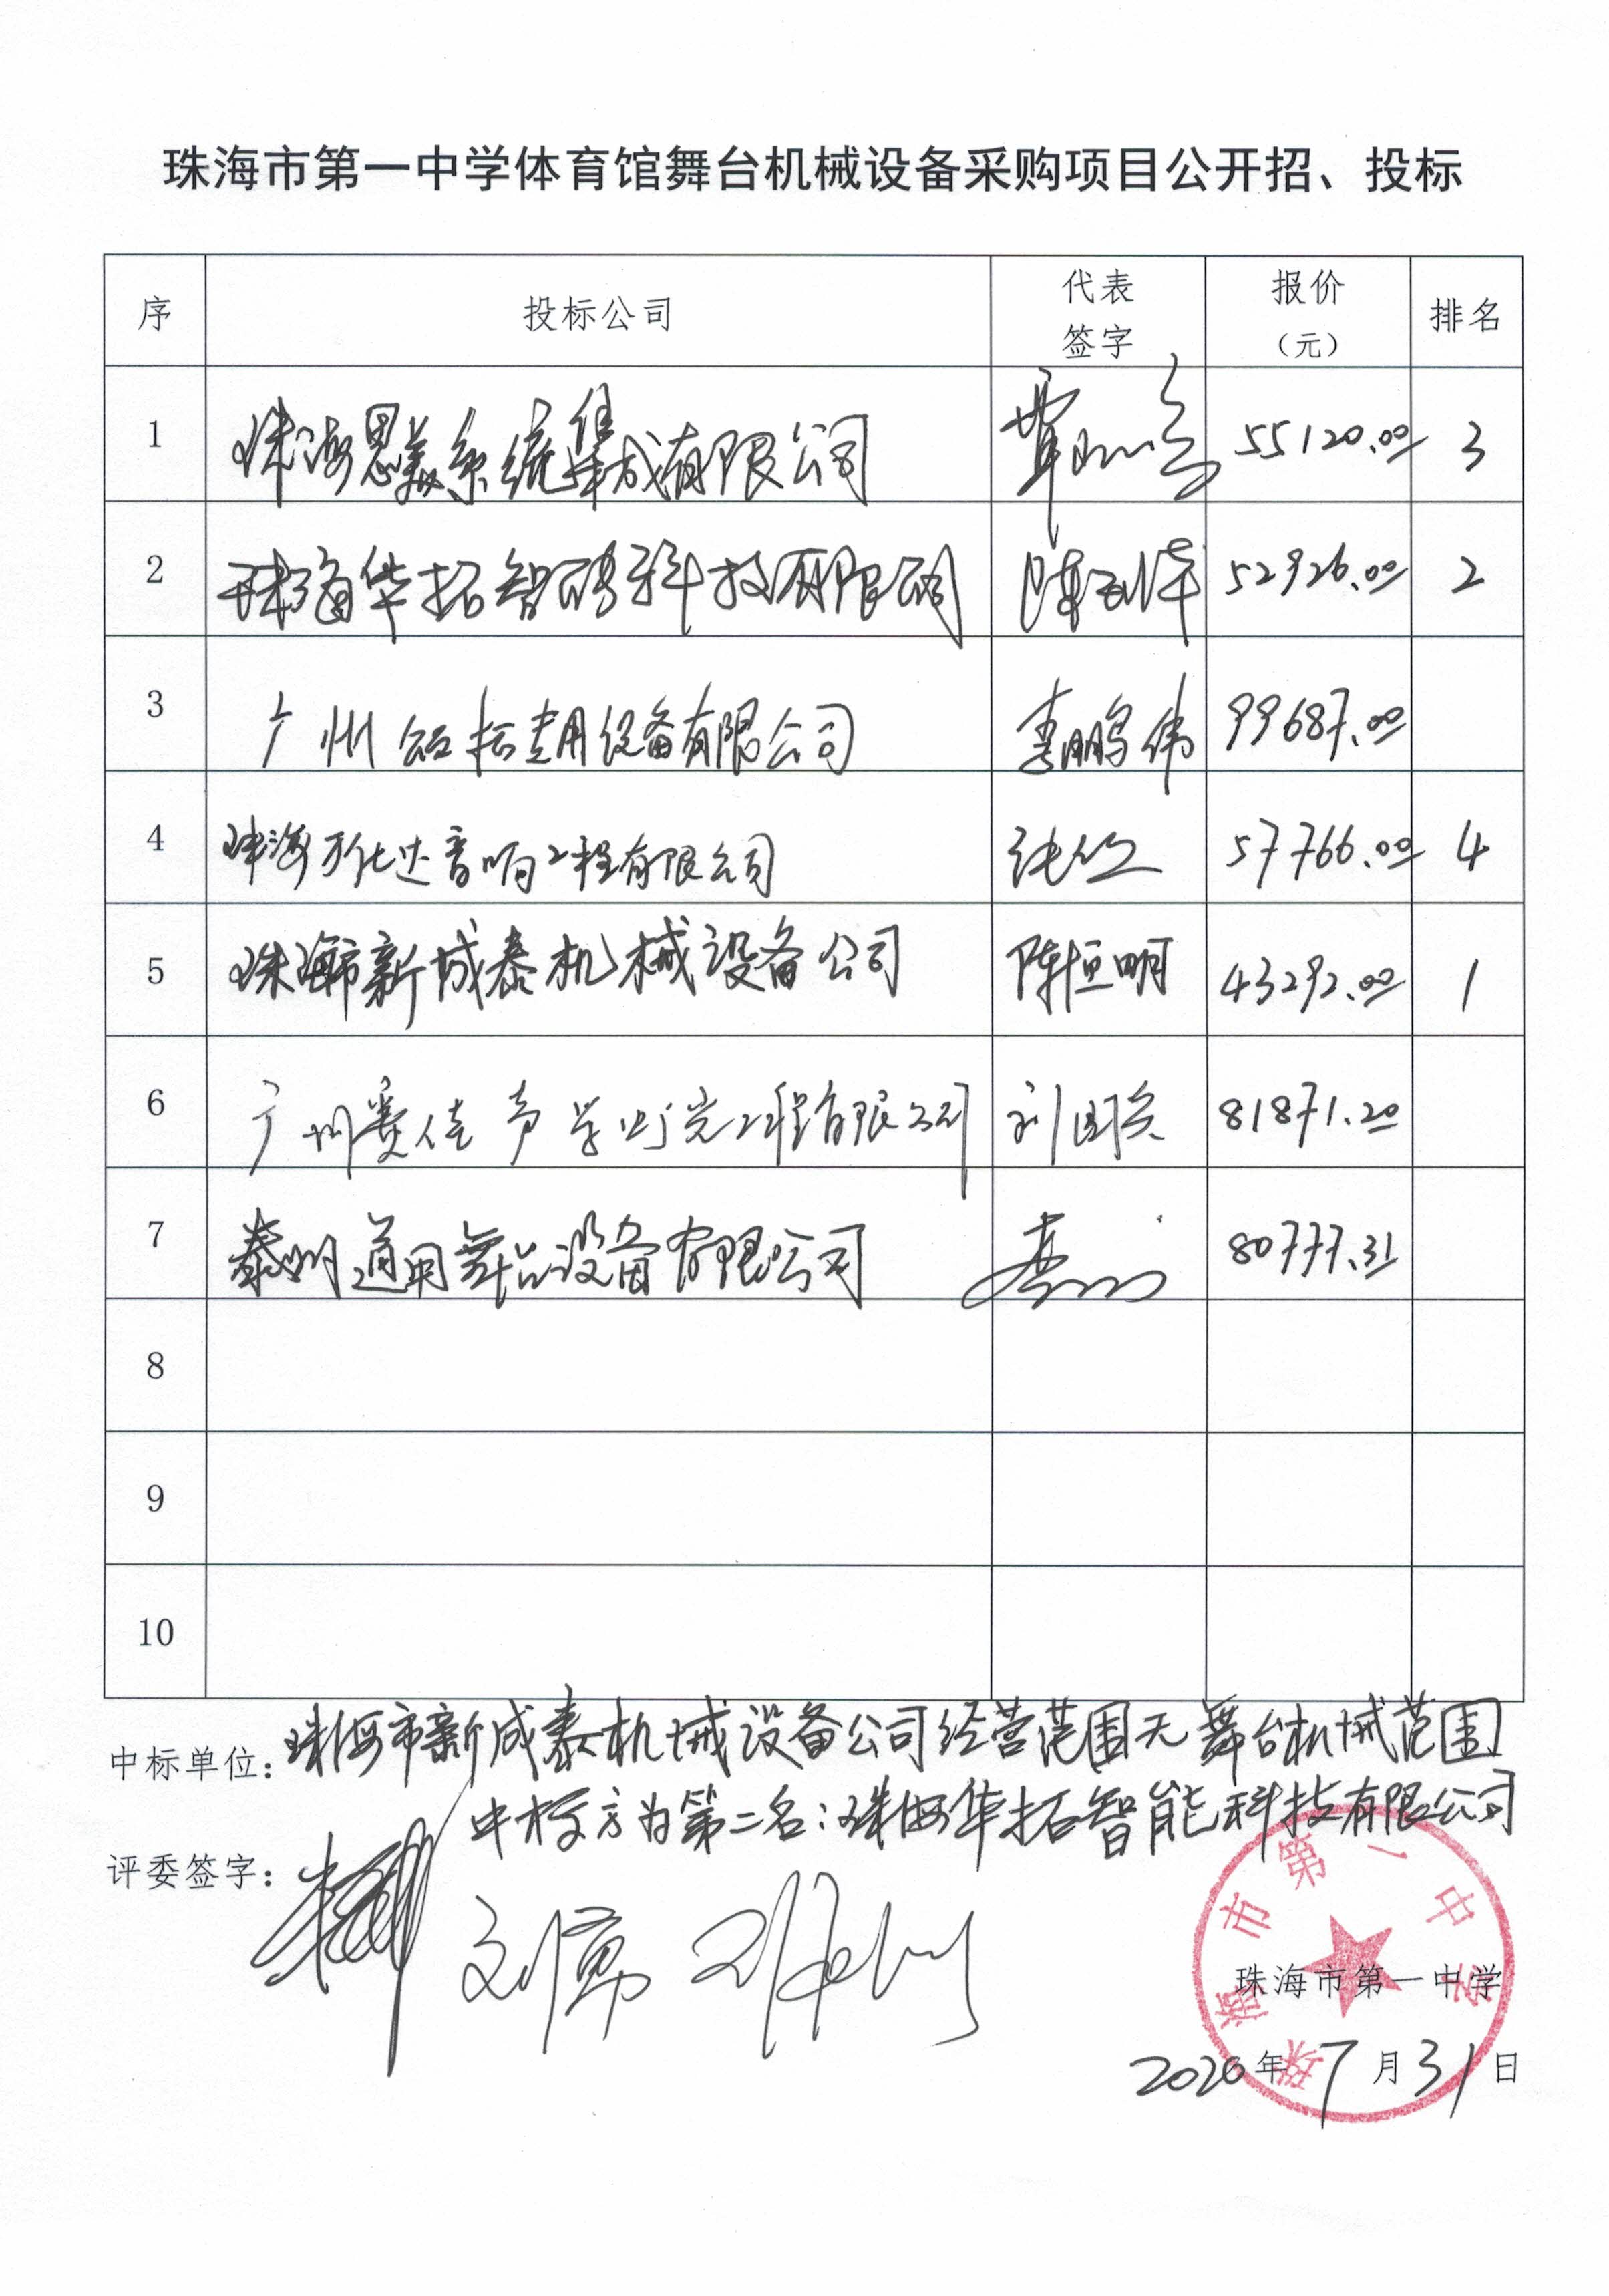 珠海市第一中学体育馆舞台机械设备采购项目公开招、投标
序 投标公司 代表签字 报价（元） 排名
1 珠海思美系统集成有限公司 55120.00 3
2 珠海华拓智能科技有限公司 52926.00 2
3 广州 专用设备有限公司 李鹏伟 99687.00
4 珠海 达音响工程有限公司 57766.00 4
5 珠海市新成泰机械设备公司 陈恒明 43292.00 1
6 广州赛佳声学灯光工程有限公司 81871.20
7 泰州通用舞台设备有限公司 80777.31
8
9
10
中标单位：珠海市新成泰机械设备公司经营范围无舞台机械范围
中标方为第二名：珠海华拓智能科技有限公司
评委签字：
珠海市第一中学
珠海市第一中学
2020年7月31日